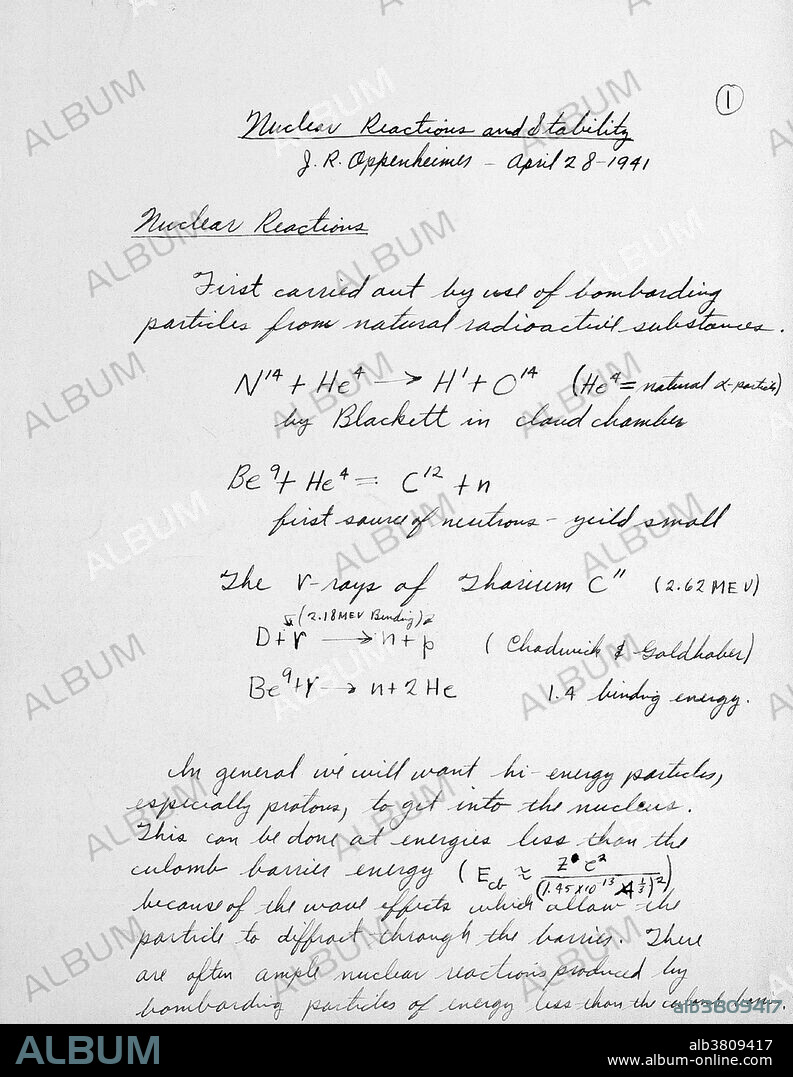 1
Nuclear Reactions and Stability
J. R. Oppenheimer - April 28-1941
Nuclear Reactions
First carried out by use of bombarding
particles from natural radioactive substances.
N¹⁴ + He⁴ → H¹ + O¹⁴ (He⁴ = natural α-particle)
by Blackett in cloud chamber
Be⁹ + He⁴ = C¹² + n
first source of neutrons - yeild small
The γ-rays of Thorium C" (2.62 MEV)
(2.18 MEV Binding)
D + γ → n + p (Chadwick & Goldhaber)
Be⁹ + γ → n + 2 He 1.4 binding energy.
In general we will want hi-energy particles,
especially protons, to get into the nucleus.
This can be done at energies less than the
culomb barrier energy (E_cb ≈ Z e² / (1.45 x 10⁻¹³ A^⅓)²)
because of the wave effects which allow the
particle to diffract through the barrier. There
are often ample nuclear reactions produced by
bombarding particles of energy less than the culomb barrier.
alb3809417
ALBUM
alb3809417
www.album-online.com